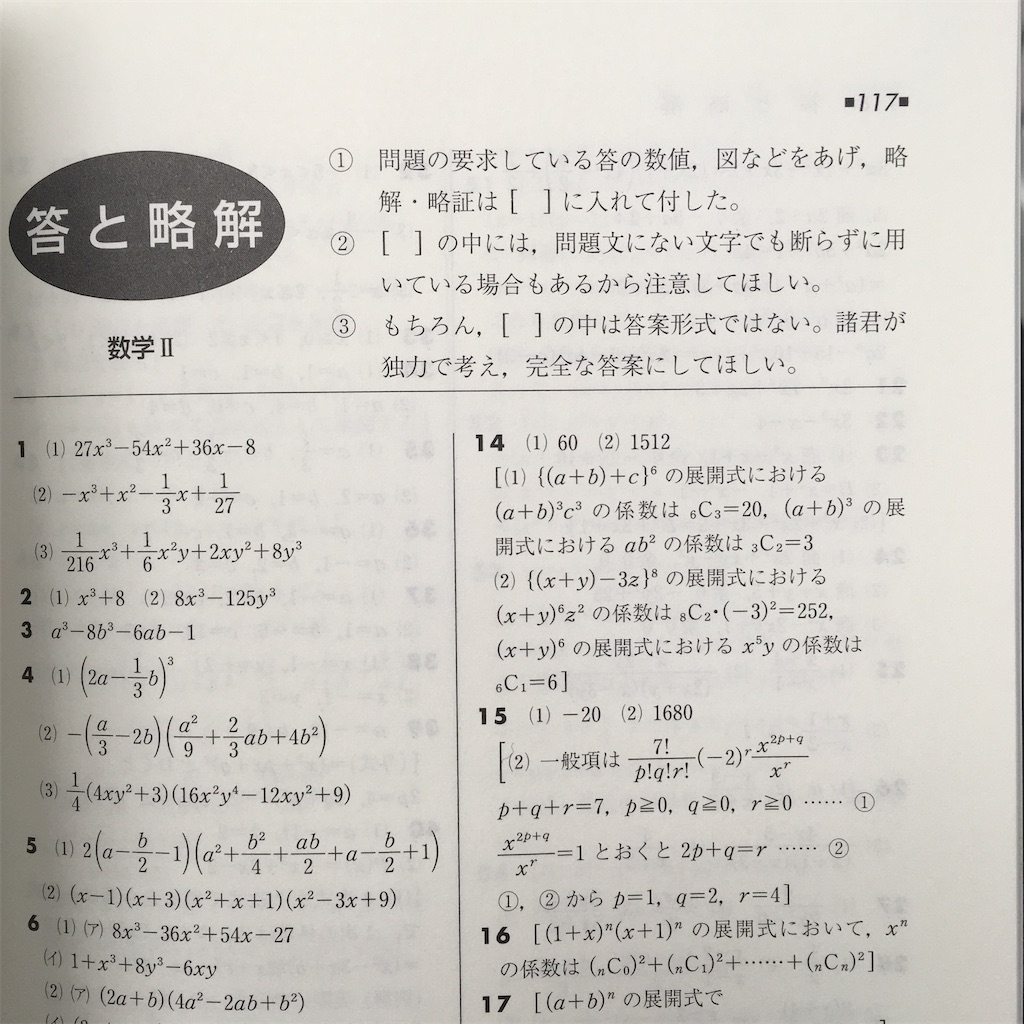 ■117■
答と略解
数学Ⅱ
① 問題の要求している答の数値，図などをあげ，略
解・略証は［　］に入れて付した。
② ［　］の中には，問題文にない文字でも断らずに用
いている場合もあるから注意してほしい。
③ もちろん，［　］の中は答案形式ではない。諸君が
独力で考え，完全な答案にしてほしい。
1 (1) 27x³−54x²+36x−8
(2) −x³+x²−1/3x+1/27
(3) 1/216x³+1/6x²y+2xy²+8y³
2 (1) x³+8 (2) 8x³−125y³
3 a³−8b³−6ab−1
4 (1) (2a−1/3b)³
(2) −(a/3−2b)(a²/9+2/3ab+4b²)
(3) 1/4(4xy²+3)(16x²y⁴−12xy²+9)
5 (1) 2(a−b/2−1)(a²+b²/4+ab/2+a−b/2+1)
(2) (x−1)(x+3)(x²+x+1)(x²−3x+9)
6 (1) (ア) 8x³−36x²+54x−27
(イ) 1+x³+8y³−6xy
(2) (ア) (2a+b)(4a²−2ab+b²)
14 (1) 60 (2) 1512
[(1) {(a+b)+c}⁶ の展開式における
(a+b)³c³ の係数は ₆C₃=20，(a+b)³ の展
開式における ab² の係数は ₃C₂=3
(2) {(x+y)−3z}⁸ の展開式における
(x+y)⁶z² の係数は ₈C₂・(−3)²=252,
(x+y)⁶ の展開式における x⁵y の係数は
₆C₁=6]
15 (1) −20 (2) 1680
[(2) 一般項は 7!/p!q!r!(−2)ʳ x²ᵖ⁺q/xʳ
p+q+r=7, p≧0, q≧0, r≧0 …… ①
x²ᵖ⁺q/xʳ=1 とおくと 2p+q=r …… ②
①，② から p=1, q=2, r=4]
16 [(1+x)ⁿ(x+1)ⁿ の展開式において，xⁿ
の係数は (ₙC₀)²+(ₙC₁)²+……+(ₙCₙ)²]
17 [(a+b)ⁿ の展開式で